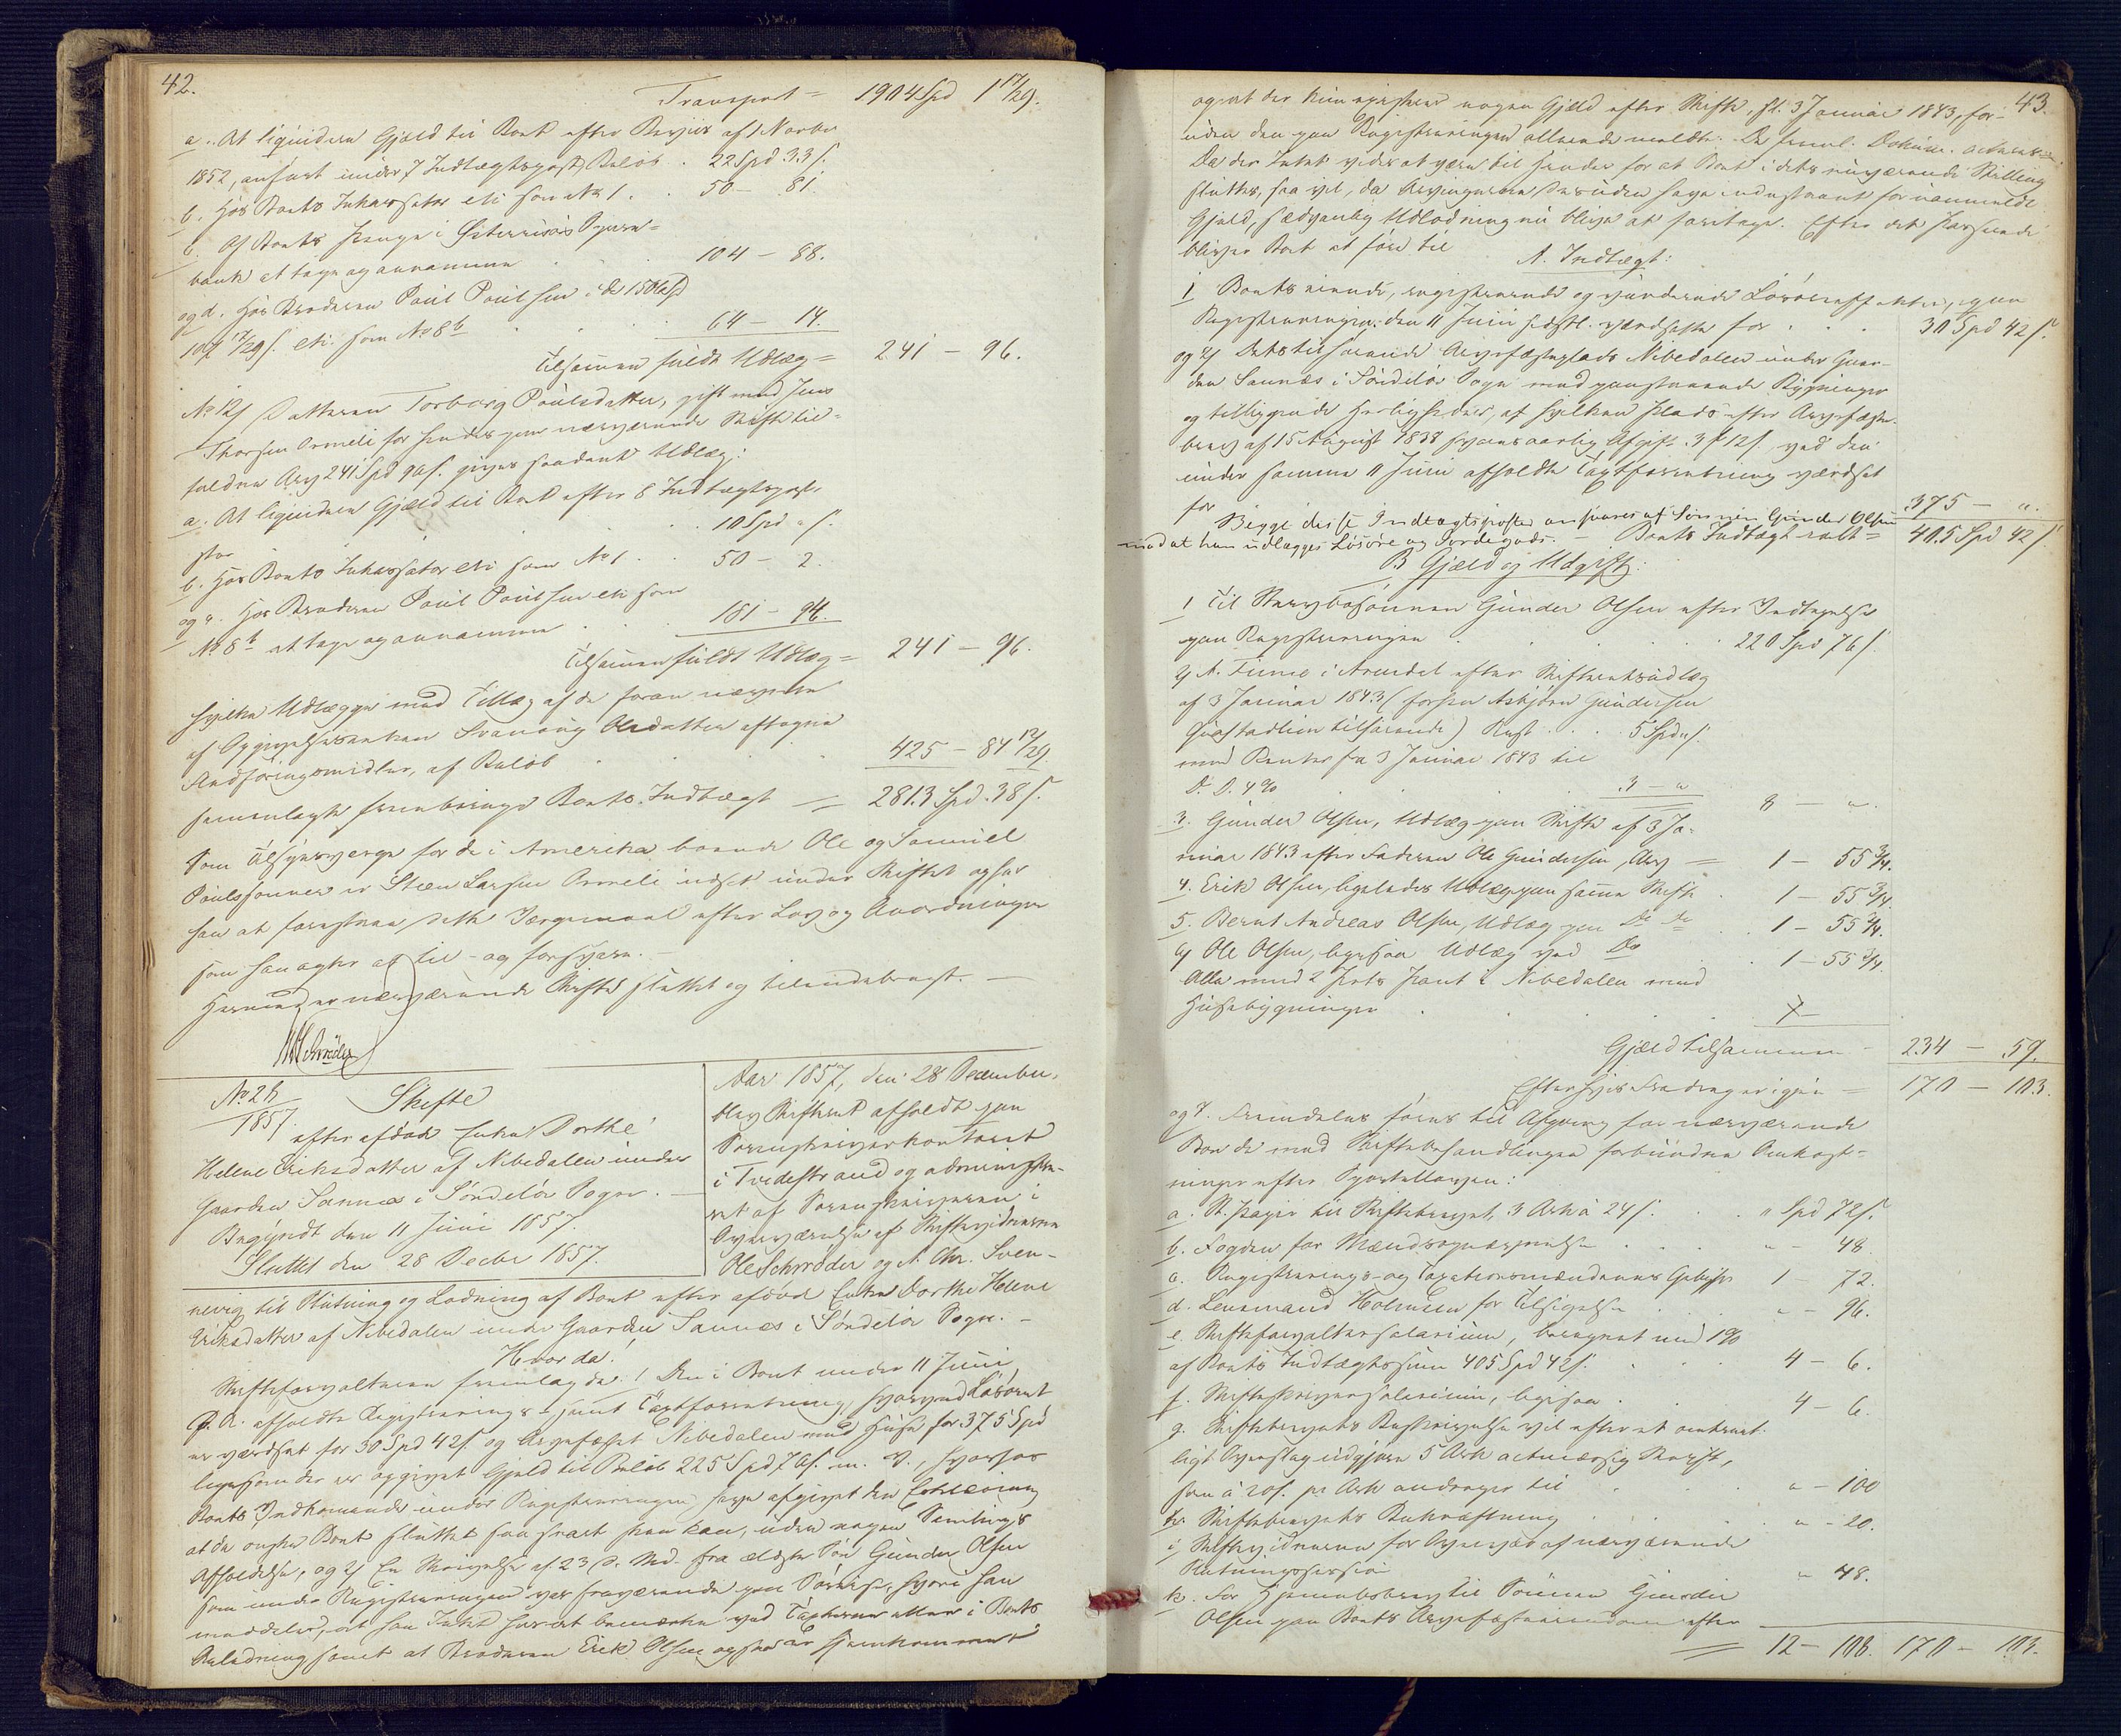 42.
Transport = 1904 Spd 1 17/29 s.
a. At liqvidere Gjæld til Boet efter Beviis af 1 Novbr
1852, anført under 7 Indtægtspost, Beløb . 22 Spd 33 s.
b. Hos Boets Inkassator etc. som No 1 . . 50 – 81.
c. Af Boets Penge i Østerriisøers Spare-
bank at tage og annamme . . 104 – 88.
og d. Hos Broderen Poul Poulsen i de
17/29 s. etc. som No 8 b . . 64 – 14.
Tilsammen fuldt Udlæg = 241 – 96.
No 12, Datteren Torborg Poulsdatter, gift med Jens
Thorsen Ormeli for hendes paa nærværende Skifte til-
faldne Arv 241 Spd 96 s. gives saadant Udlæg:
a. At liqvidere Gjæld til Boet efter 8 Indtægtspost,
10 Spd " s.
b. Hos Boets Inkassator etc. som No 1 . . 50 – 2.
og c. Hos Broderen Poul Poulsen etc. som
No 8 b at tage og annamme . . 181 – 94.
Tilsammen fuldt Udlæg = 241 – 96.
hvilke Udlægge med Tillæg af de foran nævnte
af Opgivelsesenken Olsdatter aftagne
Beløb . . 425 – 84 12/29.
sammenlagte frembringe Boets Indtægt = 2813 Spd. 38 s.
Som Tilsynsværge for de i Amerika boende Ole og Samuel
Poulssønner er Steen Larsen Ormeli udset under Skiftet og har
han at forestaa dette Værgemaal efter Lov og Anordninger
som han agter at til- og forsvare. –
Hermed er nærværende Skifte sluttet og tilendebragt. –
Schrøder
No 26
1857.
Skifte
efter afdøde Enke Dorthe
Helene Eriksdatter af Nibedalen under
Gaarden Sannæs i Søndeløv Sogn. –
Begyndt den 11 Juni 1857.
Sluttet den 28 Decbr 1857.
Aar 1857, den 28 December,
blev Skifteret afholdt paa
Sorenskriverkontoret
i Tvedestrand og administre-
ret af Sorenskriveren i
Overværelse af Skiftevidnerne
Ole Schrøder og A. Chr. Sven-
nevig til Slutning og Lodning af Boet efter afdøde Enke Dorthe Helene
Eriksdatter af Nibedalen under Gaarden Sannes i Søndeløv Sogn. –
Hvorda!
Skifteforvalteren fremlagde: 1 Den i Boet under 11 Juni
d. A. afholdte Registrerings- samt Taxtforretning, hvorved Løsøret
er værdsat for 30 Spd 42 s. og Arvefæstet Nibedalen med Huse for 375 Spd
ligesom der er opgivet Gjæld til Beløb 225 Spd 76 s. m. V., hvorhos
Boets Vedkommende under Registreringen have afgivet den Erklæring
at de ønske Boet sluttet saa snart skee kan, uden nogen Samlings
Afholdelse, og 2, En Skrivelse af 23 d. Md. fra ældste Søn Gunder Olsen
som under Registreringen var fraværende paa Søreise, hvori han
meddeler, at han Intet har at bemærke ved Taxterne eller i Boets
Anledning samt at Broderen Erik Olsen ogsaa er hjemkommen
43.
ogsaa at der kun existerer nogen Gjæld efter Skifte, sl. 3 Januar 1843, for-
uden den paa Registreringen allerede meldte. De freml. Dokum. acteres.
Da der Intet vides at være til Hinder for at Boet i dets nuværende Stilling
sluttes, saa vil, da Arvingerne desuden have indestaaet for uanmeldt
Gjæld, sædvanlig Udlodning nu blive at foretage. Efter det Passerede
bliver Boet at føre til
A. Indtægt:
1 Boets eiende, registrerede og vurderede Løsøreeffekter, paa
Registreringen den 11 Juni sidstl. værdsatte for . . . 30 Spd 42 s.
og 2, Dets tilhørende Arvefæsteplads Nibedalen under Gaar-
den Sannæs i Søndeløv Sogn med paastaaende Bygninger
og tilliggende Herligheder, af hvilken Plads efter Arvefæste-
brev af 15 August 1838 svares aarlig Afgift 3 # 12 s. ved den
under samme 11 Juni afholdte Taxtforretning værdsat
for . . 375 – ".
Begge disse Indtægtsposter ansvares af Sønnen Gunder Olsen
mod at ham udlægges Løsøre og Jordegods. – Boets Indtægt ialt = 405 Spd 42 s.
B Gjæld og Udgift:
1 Til Stervbosønnen Gunder Olsen efter Vedtagelse
paa Registreringen . . 220 Spd 76 s.
2, A. Finne i Arendal efter Skifteretsudlæg
af 3 Januar 1843 (forhen Asbjørn Gundersen
tilhørende) Rest . . . 5 Spd " s.
med Renter fra 3 Januar 1843 til
D. D. 4 % . . 3 – " 8 – ".
3. Gunder Olsen, Udlæg paa Skifte af 3 Ja-
nuar 1843 efter Faderen Ole Gundersen, Arv = 1 – 55 3/4.
4. Erik Olsen, ligeledes Udlæg paa samme Skifte . 1 – 55 3/4.
5. Bernt Andreas Olsen, Udlæg paa Do Do . 1 – 55 3/4.
6, Ole Olsen, ligesaa Udlæg ved Do . 1 – 55 3/4.
Alle med 2 Prts Pant i Nibedalen med
Husebygninger . .
Gjæld tilsammen – 234 – 59.
Efter hvis Fradrag er igjen = 170 – 103.
og 7. Fremdeles føres til Afgang for nærværende
Boe de med Skiftebehandlingen forbundne Omkost-
ninger efter Sportelloven:
a. St. Papir til Skiftebrevet, 3 Ark à 24 s. . . " Spd 72 s.
b. Fogden for Mændsopnævnelse . . " – 48.
c. Registrerings- og Taxationsmændenes Gebyhr 1 – 72.
d. Lensmand Holmsen for Tilsigelse . . " – 96.
e. Skifteforvaltersalarium, beregnet med 1 %
af Boets Indtægtssum 405 Spd 42 s. . . 4 – 6.
f. Skifteskriversalarium, ligesaa . . 4 – 6.
g. Skiftebrevets Beskrivelse vil efter et omtrent-
ligt Overslag udgjøre 5 Ark actmæssig Skrift,
som à 20 s. pr Ark andrager til . . " – 100
h. Skiftebrevets Bekræftning . . " – 20.
i, Skiftevidnerne for Overvær af nærværende
Slutningssession " – 48.
k. For Hjemmelsbrev til Sønnen Gunder
Olsen paa Boets Arvefæsteeiendom efter
= 12 – 108. 170 – 103.